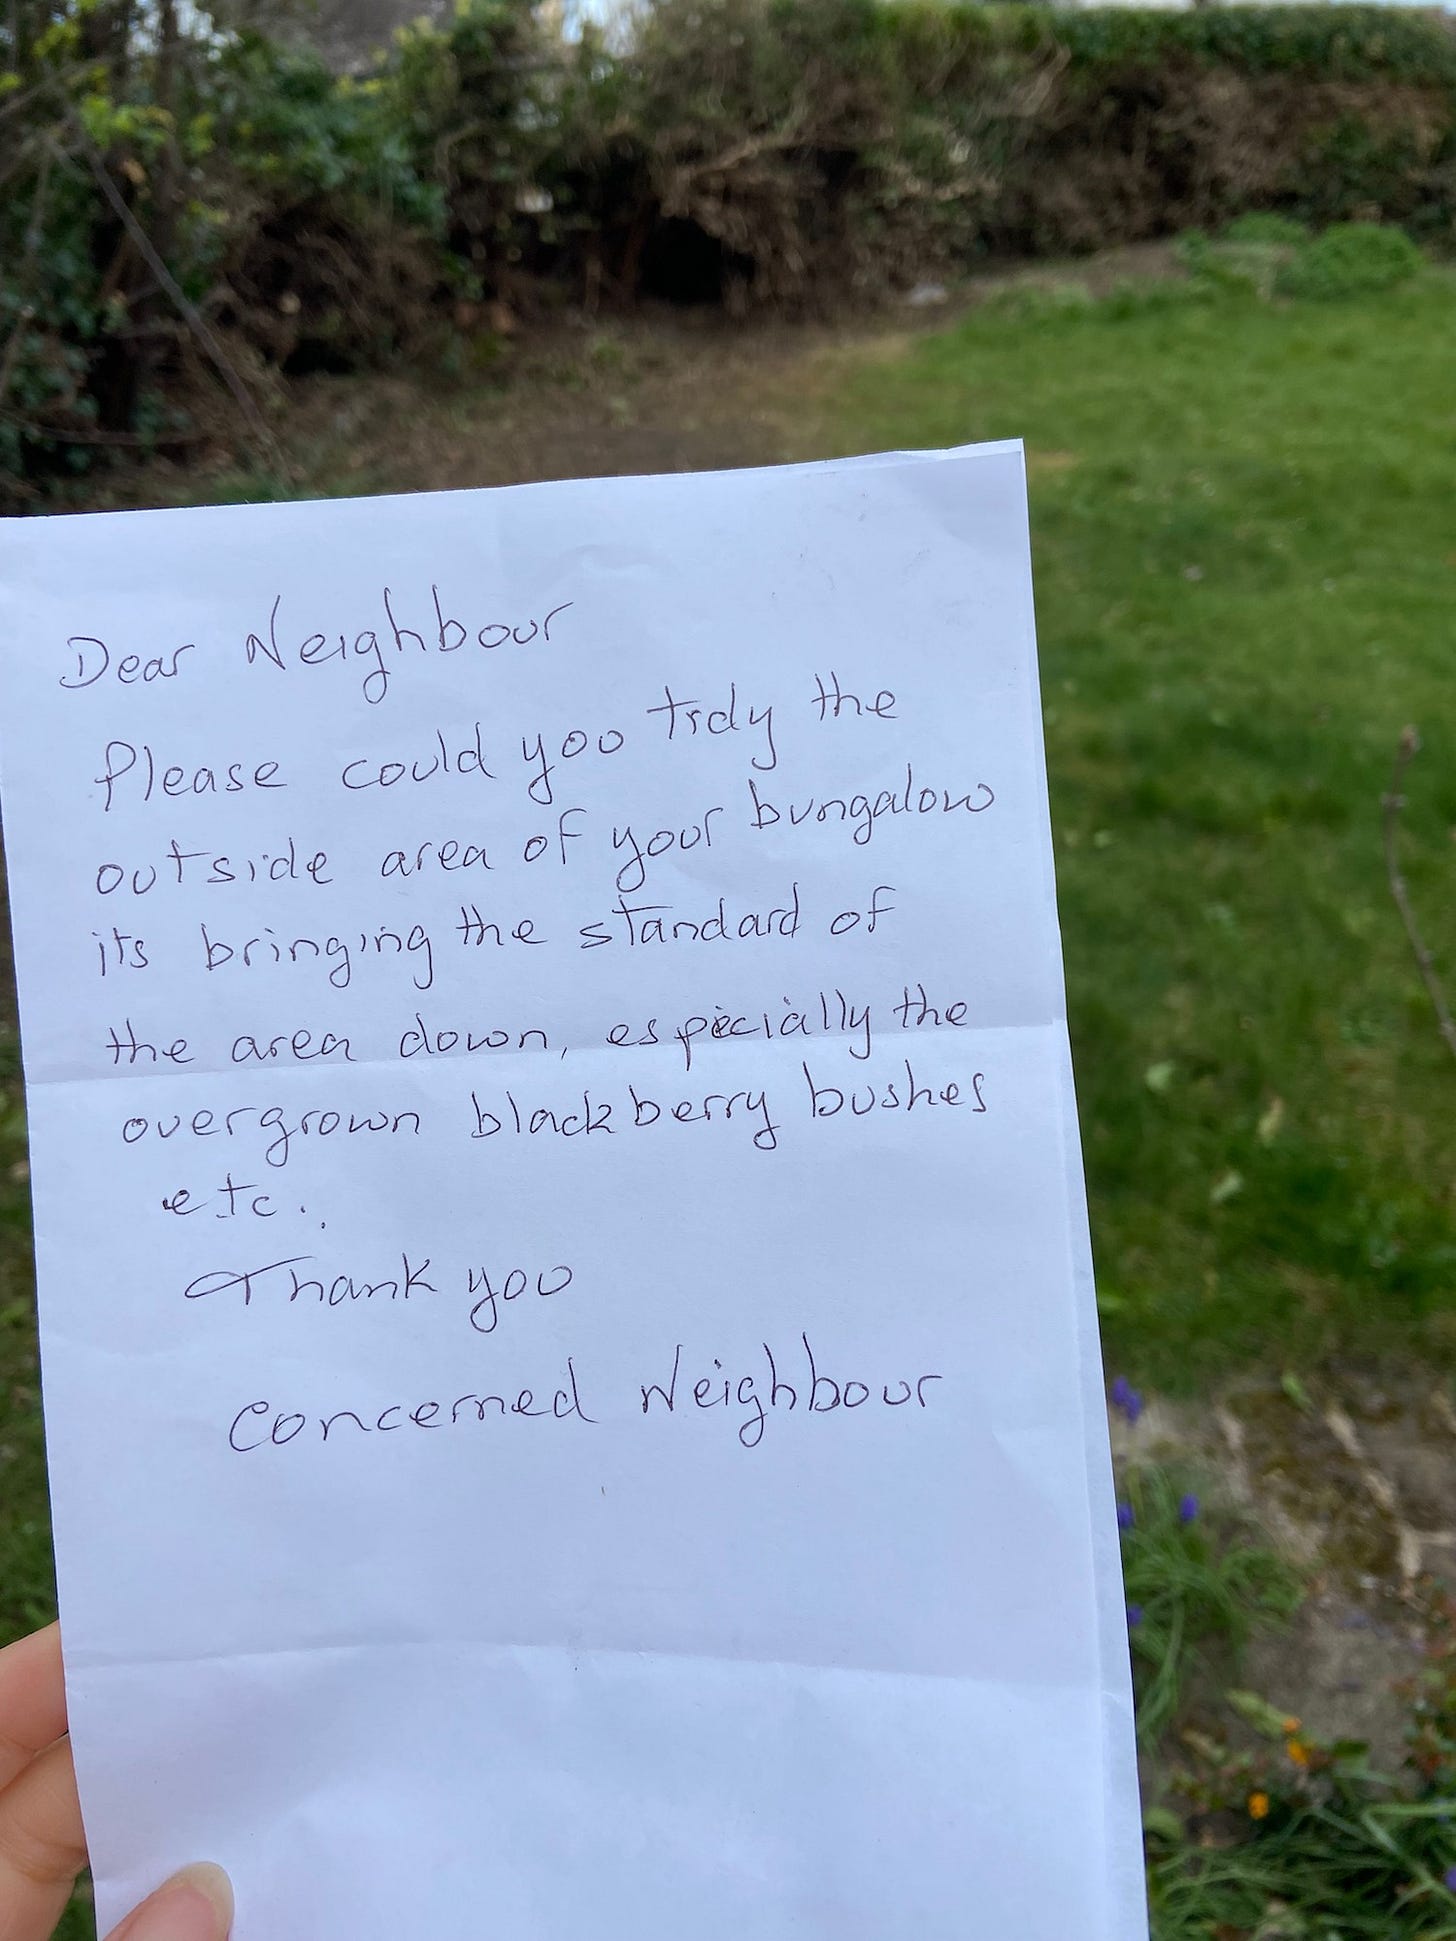 Dear Neighbour
Please could you tidy the
outside area of your bungalow
its bringing the standard of
the area down, especially the
overgrown blackberry bushes
etc..
Thank you
Concerned Neighbour